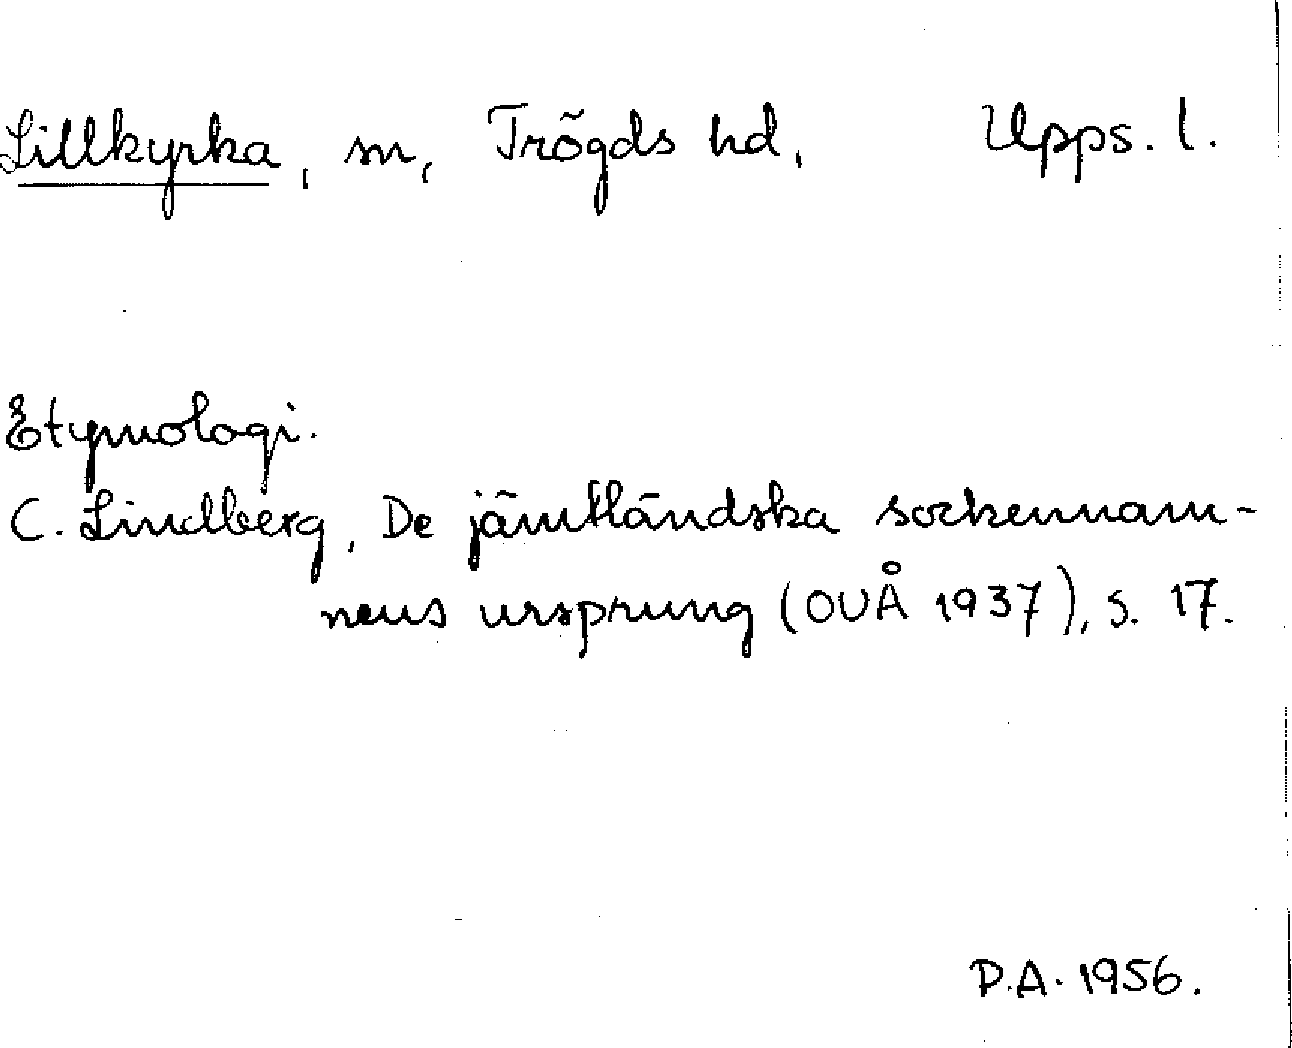 Lillkyrka, sn, Trögds hd, Upps. l.
Etymologi.
C. Lindberg, De jämtländska sockennam-
nens ursprung (OUÅ 1937), s. 17.
P.A. 1956.